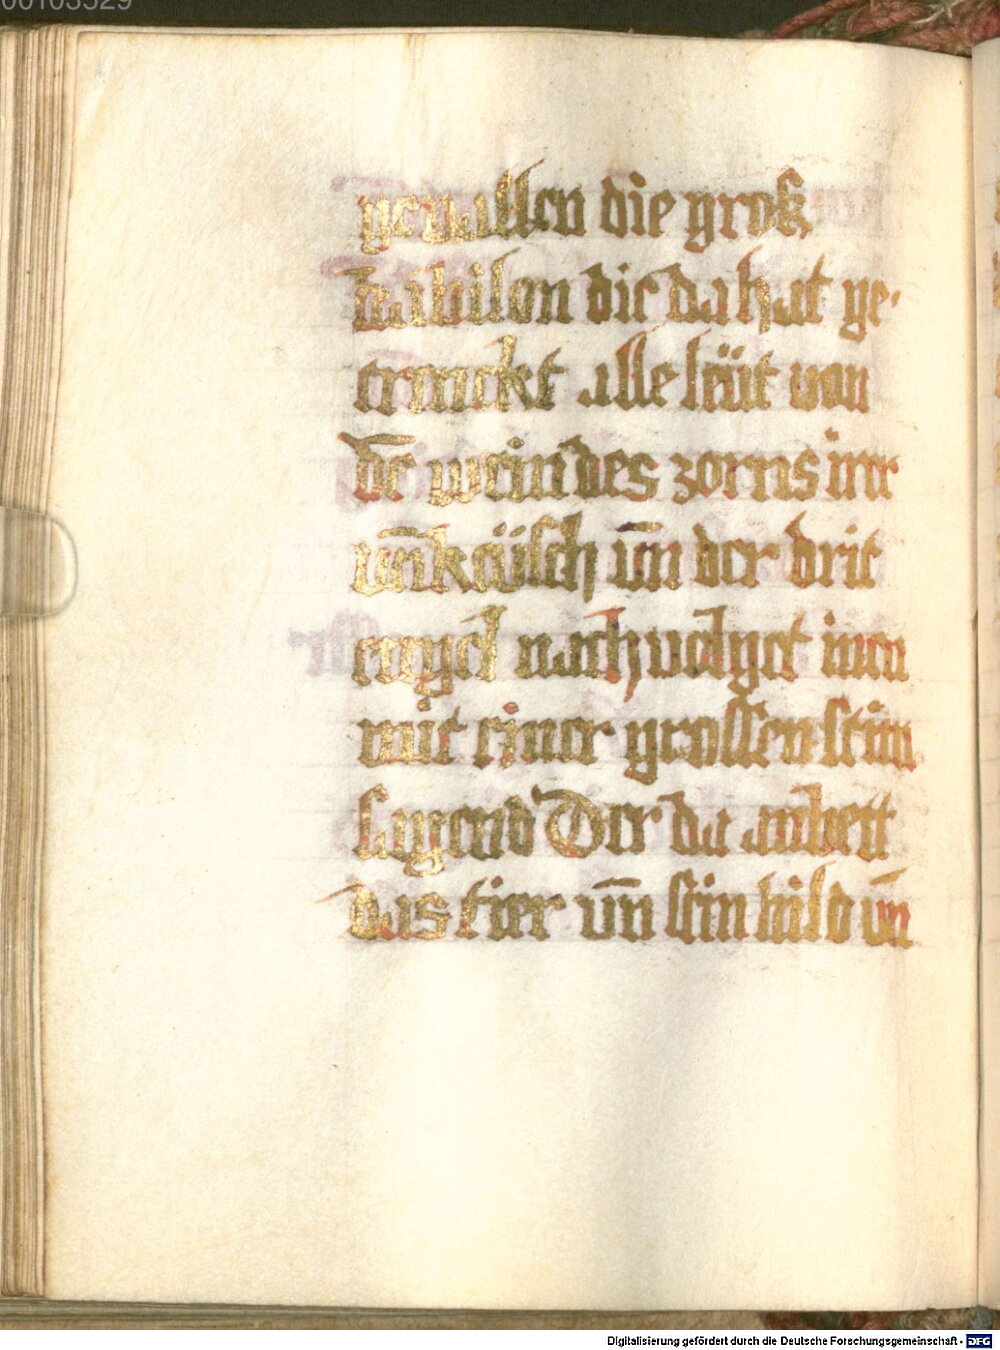 00103529
gevallen die groß
babilon die da hat ge-
trenckt alle leüt von
dē wein des zorns irer
vn̄keüsch vn̄ der drit
engel nachvolget inen
mit einer grossen stim
sagend Der da anbett
das tier vn̄ sein bild vn̄
Digitalisierung gefördert durch die Deutsche Forschungsgemeinschaft - DFG